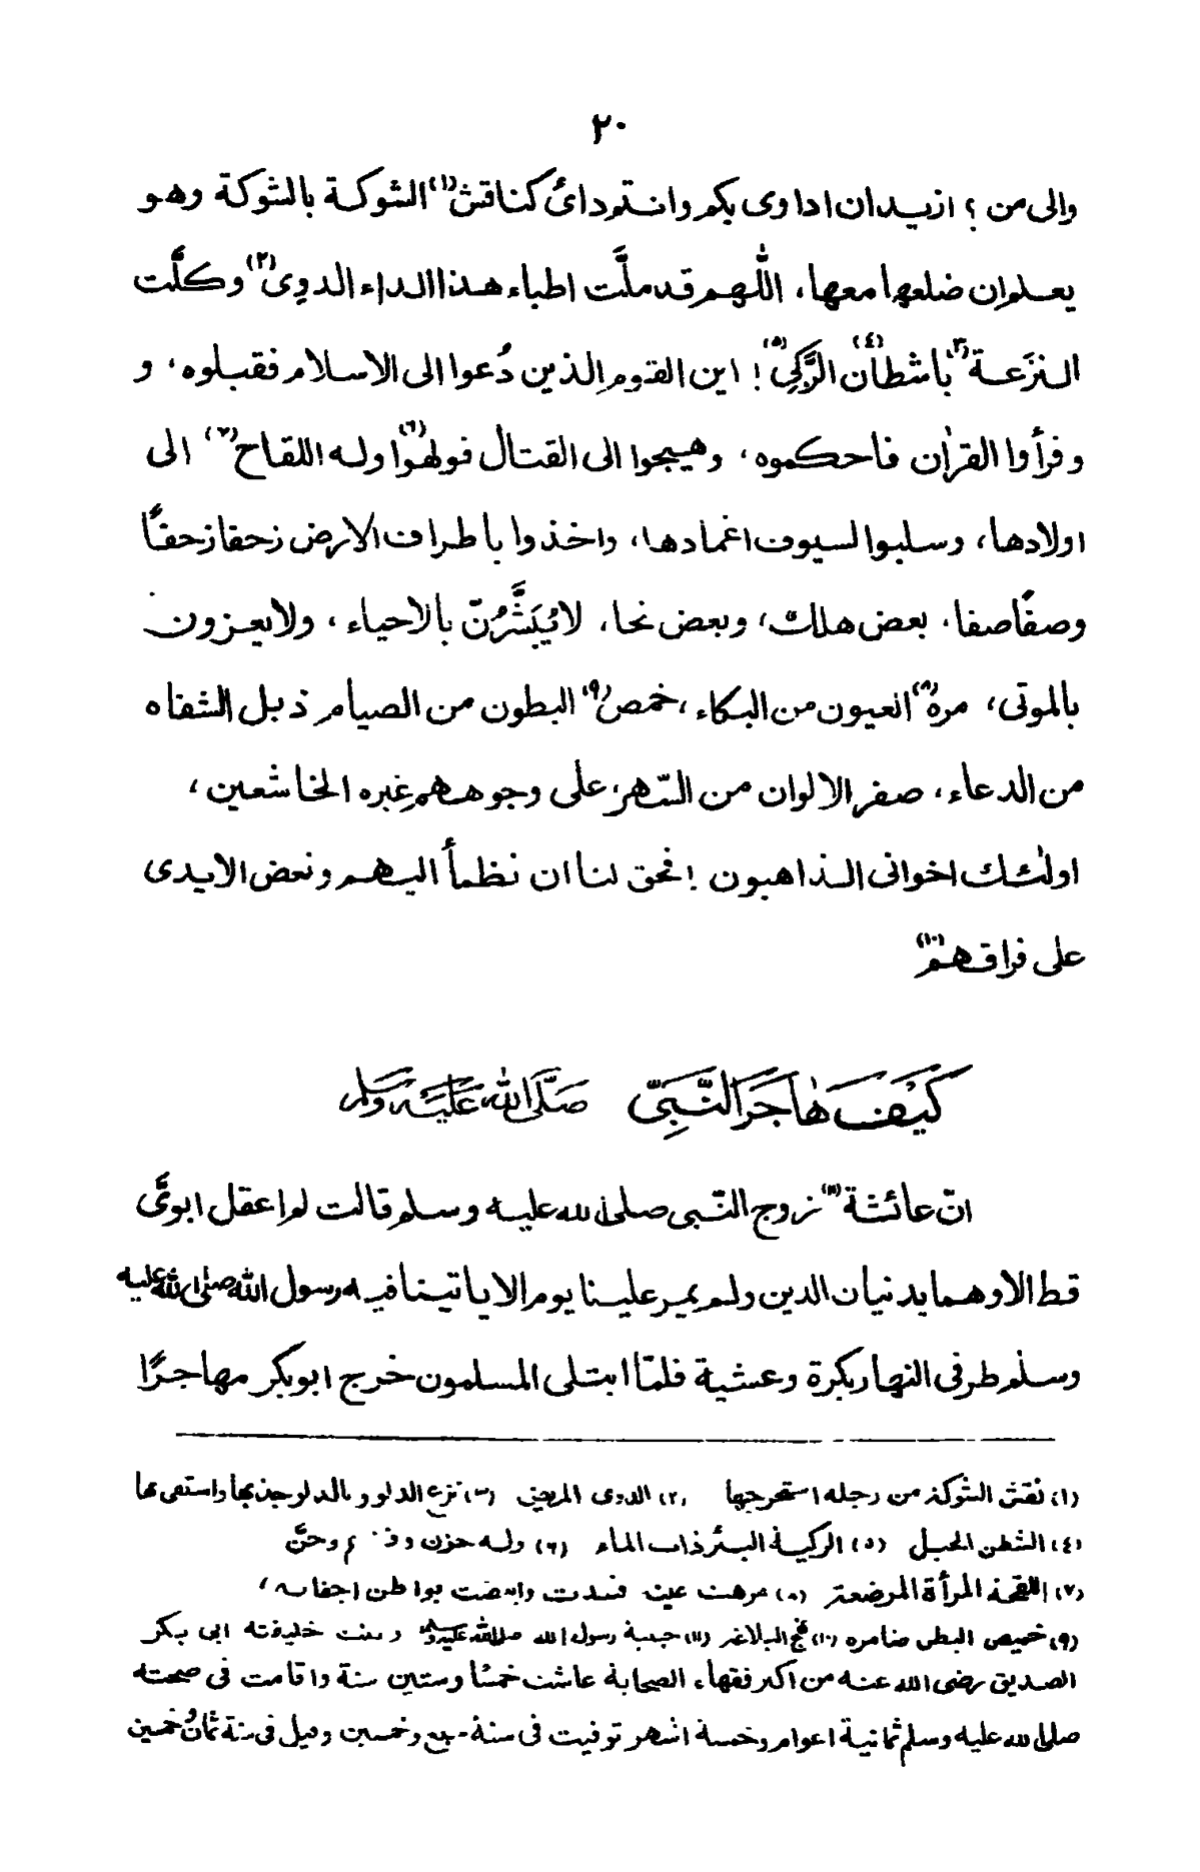 ٢٠
والى من ؟ اريد ان اداوى بكم وانتم دائى كناقش (١) الشوكة بالشوكة وهو
يعلم ان ضلعها معها، اللّٰهم قد ملَّت اطباء هذا الداء الدوِى (٢) وكلَّت
النزَعة (٣) باشطان (٤) الرَّكِى (٥)! اين القوم الذين دُعوا الى الاسلام فقبلوه، و
وقرأوا القراٰن فاحكموه، وهيجوا الى القتال فولهوا (٦) وله اللقاح (٧) الى
اولادها، وسلبوا لسيوف اغمادها، واخذوا باطراف الارض زحفا زحفًا
وصفًا صفا. بعض هلك، وبعض نجا، لا يُبَشَّرُنّ بالاحياء، ولا يعزون
بالموتى، مره (٨) العيون من البكاء، خمص (٩) البطون من الصيام ذبل الشفاه
من الدعاء، صفر الالوان من السّهر، على وجوههم غبره الخاشعين،
اولٰئك اخوانى الذاهبون! فحق لنا ان نظمأ اليهم ونعض الايدى
على فراقهم (١٠)
كَيْفَ هَاجَرَ النَّبِيّ صَلَّى اللّٰه عَلَيْه وَسلم
انّ عائشة (١١) زوج النّبى صلى الله عليه وسلم قالت لم اعقل ابوىَّ
قط الا وهما يدنيان الدين ولم يمر علينا يوم الا ياتينا فيه رسول اللّٰه صلى اللّٰه عليه
وسلم طرفى النهار بكرة وعشية فلمّا ابتلى المسلمون خرج ابوبكر مهاجرًا
(١) نقش الشوكة من رجله استخرجها (٢) الدوى المريض (٣) نزع الدلو وبالدلو جذبها واستقى بها
(٤) الشطن الحبل (٥) الركية البئر ذات الماء (٦) وله حزن وحنَّ
(٧) اللقحة المرأة المرضعة (٨) مرهت عينه فسدت وابيضت بواطن اجفانه،
(٩) خميص البطن ضامره (١٠) نهج البلاغه (١١) حبيبة رسول الله صلى الله عليه وسلم وبنت خليفته ابى بكر
الصديق رضى الله عنه من اكبر فقهاء الصحابة عاشت خمسًا وستين سنة واقامت فى صحبته
صلى الله عليه وسلم ثمانية اعوام وخمسة اشهر توفيت فى سنة سبع وخمسين وقيل فى سنة ثمان وخمسين